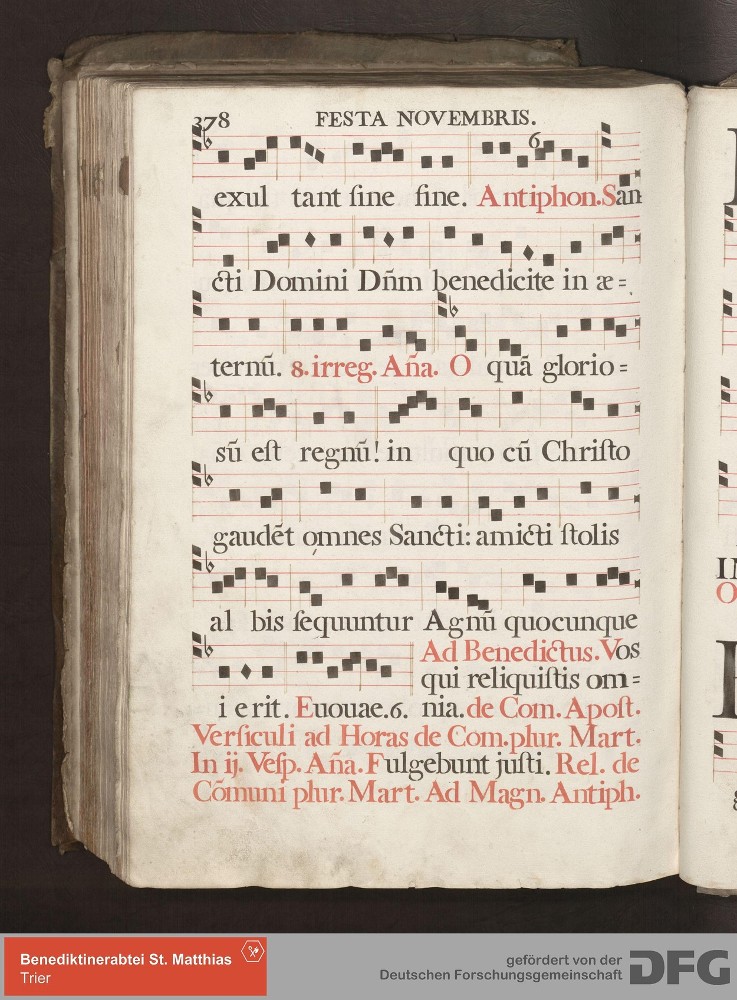 378 FESTA NOVEMBRIS.
6
exul tant ſine ſine. Antiphon. San
cti Domini Dñm benedicite in æ=
ternū. 8. irreg. Aña. O quā glorio=
sū eſt regnū! in quo cū Chriſto
gaudēt omnes Sancti: amicti ſtolis
al bis ſequuntur Agnū quocunque
Ad Benedictus. Vos
qui reliquiſtis om=
i e rit. Euouae. 6. nia. de Com. Apoſt.
Verſiculi ad Horas de Com. plur. Mart.
In ij. Veſp. Aña. Fulgebunt juſti. Rel. de
Cōmuni plur. Mart. Ad Magn. Antiph.
Benediktinerabtei St. Matthias
Trier
gefördert von der
Deutschen Forschungsgemeinschaft
DFG